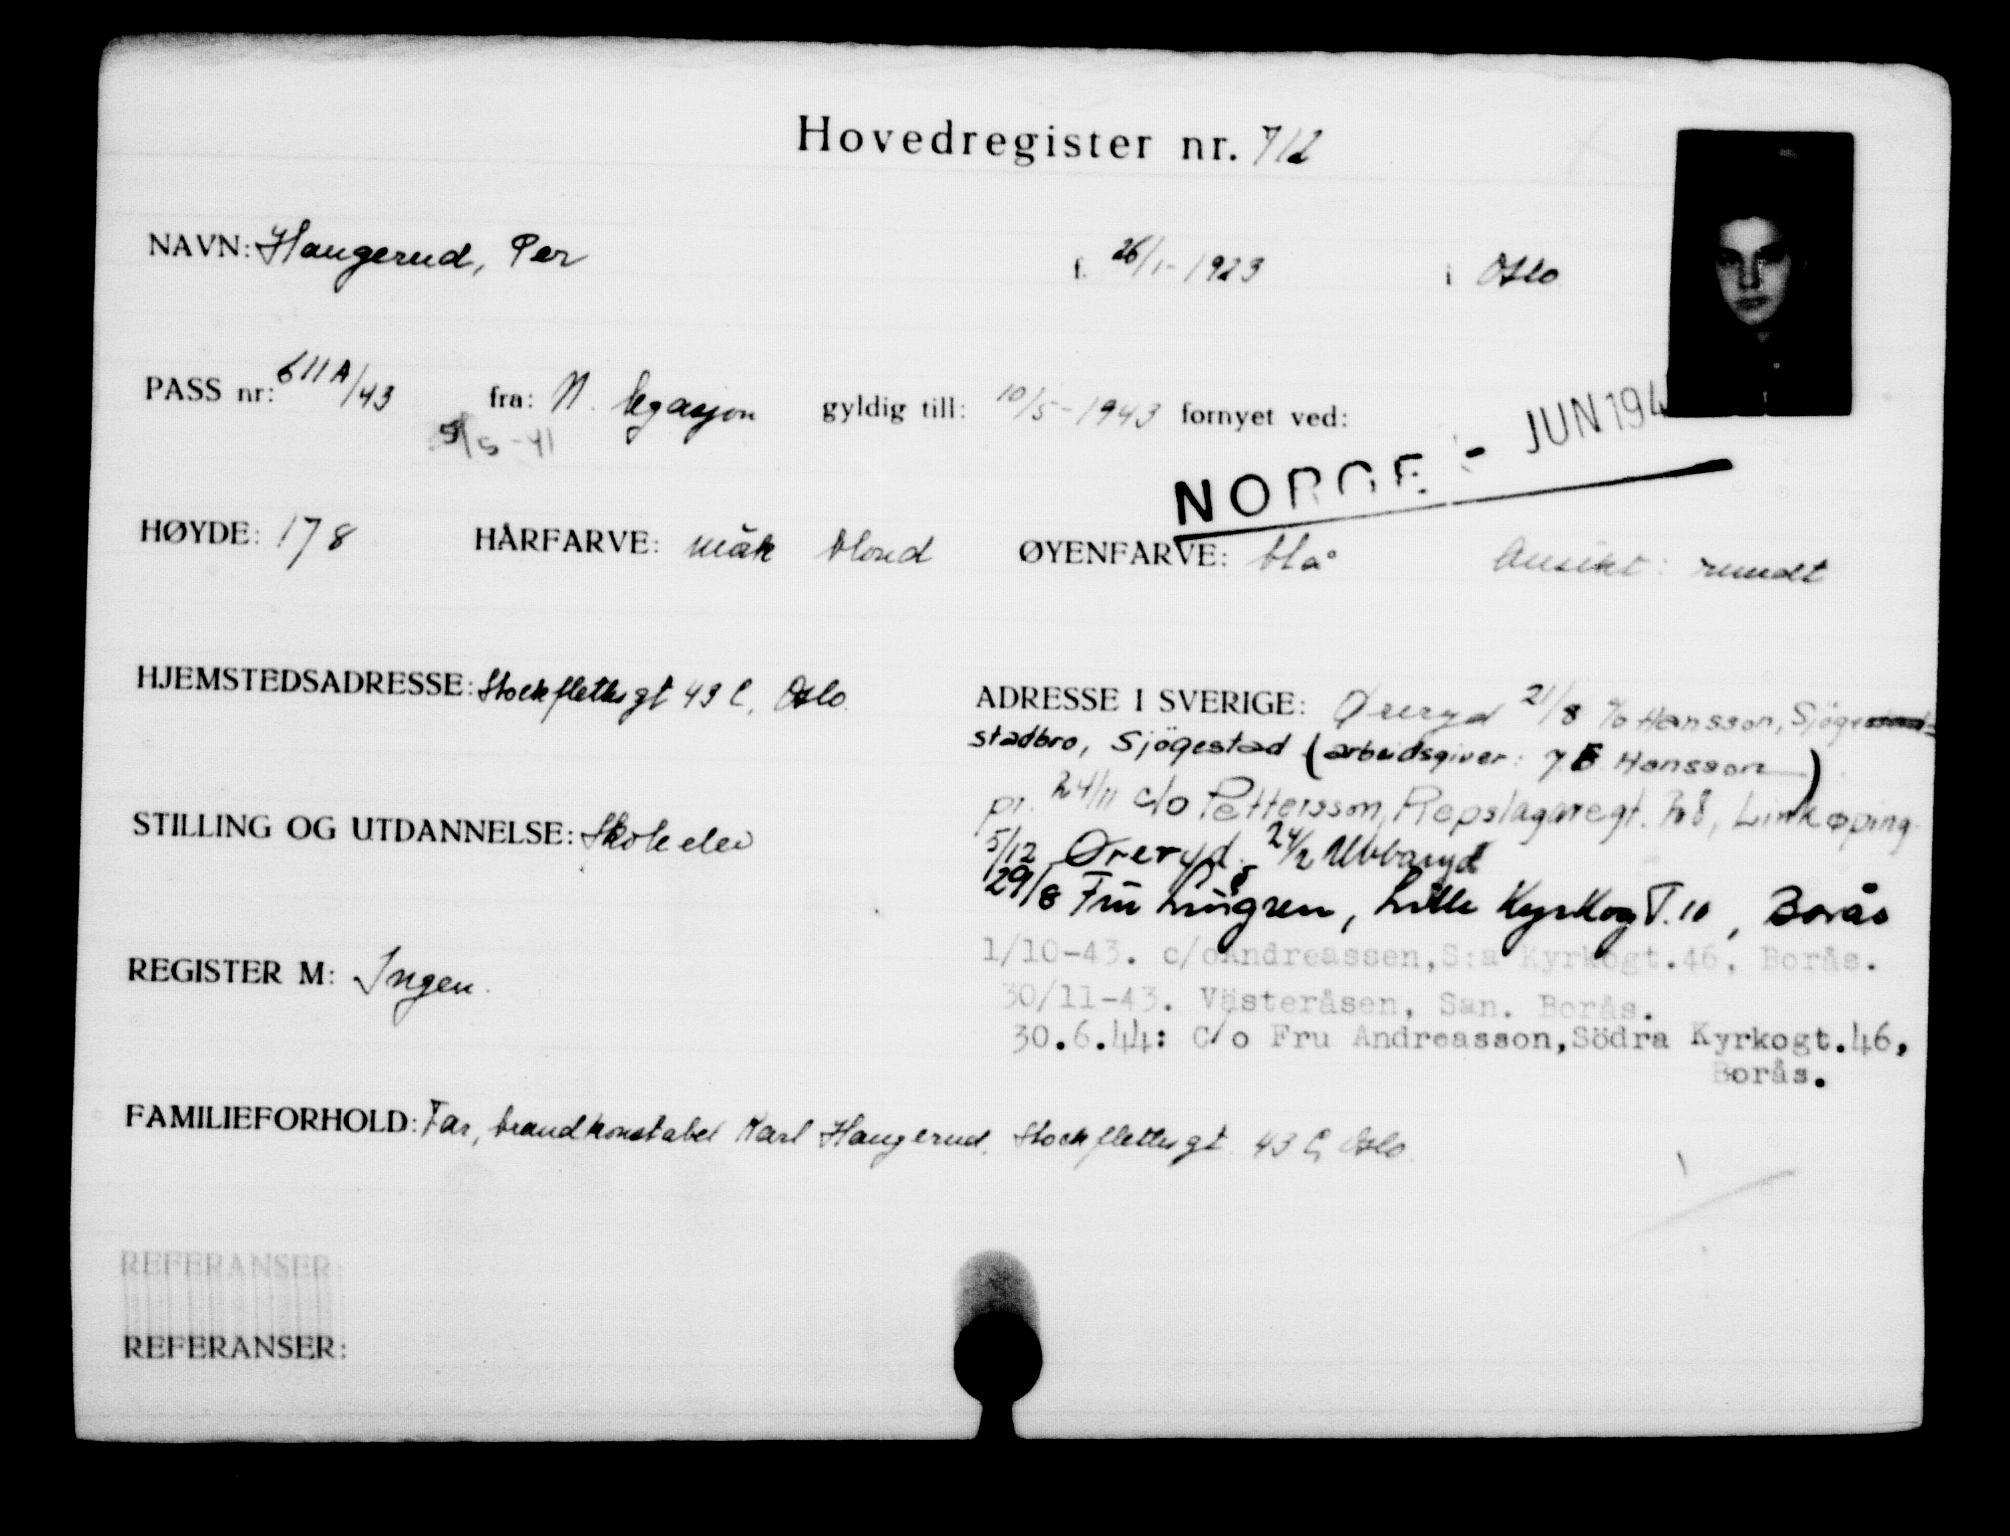 Hovedregister nr. 712
NAVN: Haugerud, Per f. 26/1-1923 i Oslo
PASS nr: 611A/43 fra: N. legasjon gyldig till: 10/5-1943 fornyet ved:
5/5-41
NORGE - JUN 194
HØYDE: 178 HÅRFARVE: mørk blond ØYENFARVE: blå Ansikt: rundt
HJEMSTEDSADRESSE: Stockflethsgt 43 C, Oslo.
ADRESSE I SVERIGE: Øreryd 21/8 c/o Hansson, Sjöge
stadbro, Sjögestad (arbeidsgiver: Hansson)
pr. 24/11 c/o Pettersson, Repslagaregt. Linkøping
5/12 Øreryd. 24/2 Ubbaryd
29/8 Fru Lille Kyrkog T. 10, Borås
1/10-43. c/o Andreassen, S:a Kyrkogt. 46, Borås.
30/11-43. Västeråsen, San. Borås.
30.6.44: C/o Fru Andreasson, Södra Kyrkogt. 46,
Borås.
STILLING OG UTDANNELSE: Skoleelev
REGISTER M: Ingen.
FAMILIEFORHOLD: Far, brandkonstabel Karl Haugerud, Stockflethsgt 43 C, Oslo.
REFERANSER:
REFERANSER: